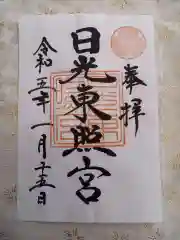 奉拝
日光東照宮
令和五年一月十五日